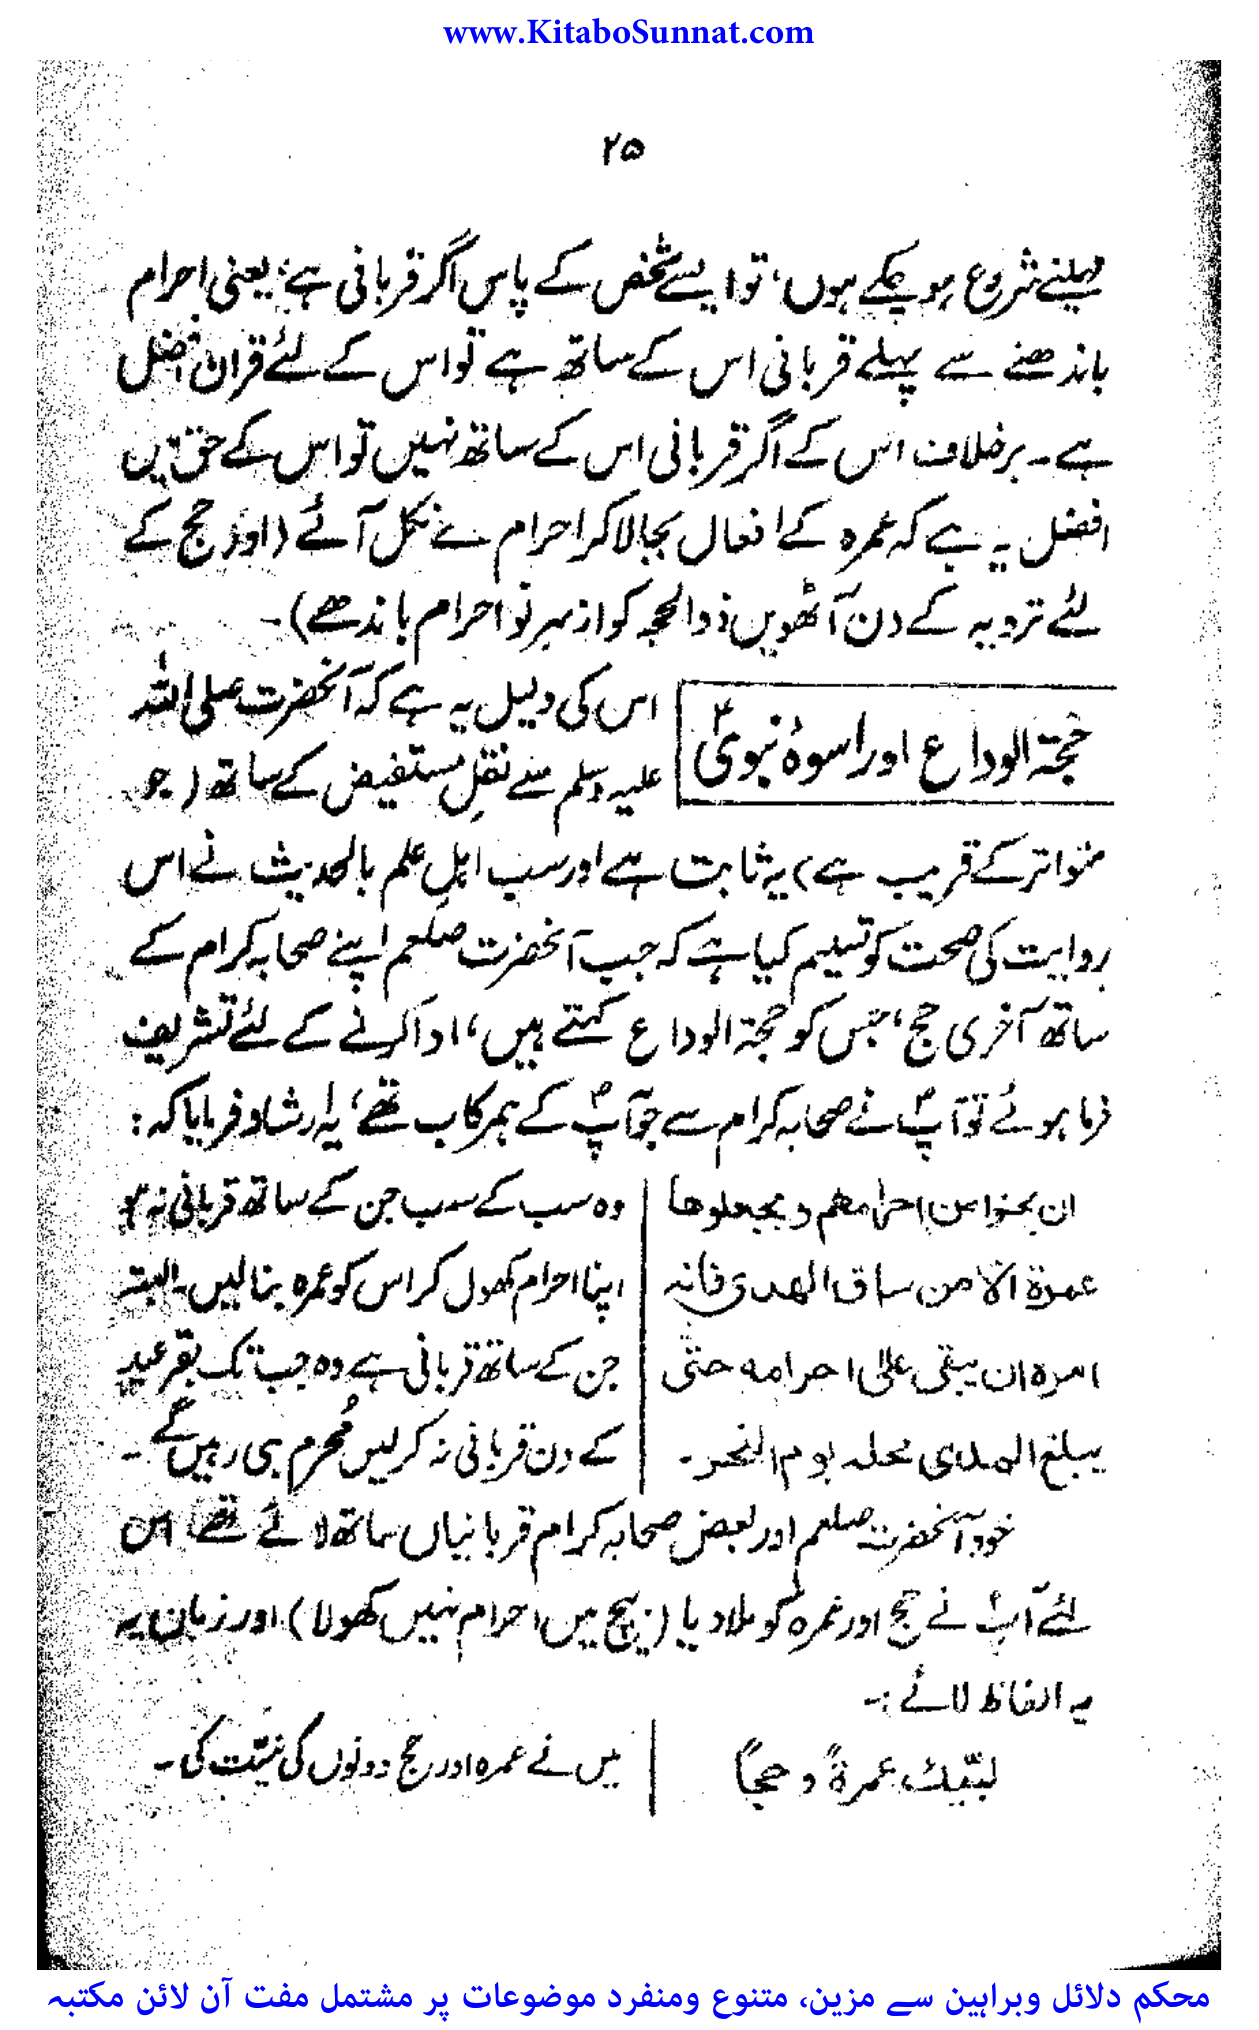 www.KitaboSunnat.com
۲۵
مہینے شروع ہو چکے ہوں، تو ایسے شخص کے پاس اگر قربانی ہے، یعنی احرام
باندھنے سے پہلے قربانی اس کے ساتھ ہے تو اس کے لئے قران افضل
ہے۔ برخلاف اس کے اگر قربانی اس کے ساتھ نہیں تو اس کے حق میں
افضل یہ ہے کہ عمرہ کے افعال بجا لا کر احرام سے نکل آئے (اور حج کے
لئے ترویہ کے دن آٹھویں ذوالحجہ کو از سر نو احرام باندھے)۔
حجۃ الوداع اور اسوۂ نبویؐ
اس کی دلیل یہ ہے کہ آنحضرت صلی اللہ
علیہ وسلم سے نقلِ مستفیض کے ساتھ (جو
متواتر کے قریب ہے) یہ ثابت ہے اور سب اہلِ علم بالحدیث نے اس
روایت کی صحت کو تسلیم کیا ہے کہ جب آنحضرت صلعم اپنے صحابہ کرام کے
ساتھ آخری حج، جس کو حجۃ الوداع کہتے ہیں، ادا کرنے کے لئے تشریف
فرما ہوئے تو آپؐ نے صحابہ کرام سے جو آپؐ کے ہمرکاب تھے، یہ ارشاد فرمایا کہ:
ان یحلوا من احرامھم و یجعلوھا
عمرۃ الا من ساق الھدی فانہ
امرہ ان یبقی علی احرامہ حتّٰی
یبلغ الھدی محلہ یوم النحر۔
وہ سب کے سب جن کے ساتھ قربانی نہ ہو
اپنا احرام کھول کر اس کو عمرہ بنا لیں۔ البتہ
جن کے ساتھ قربانی ہے وہ جب تک بقر عید
کے دن قربانی نہ کر لیں مُحرم ہی رہیں گے۔
خود آنحضرت صلعم اور بعض صحابہ کرام قربانیاں ساتھ لائے تھے، اس
لئے آپؐ نے حج اور عمرہ کو ملا دیا (بیچ میں احرام نہیں کھولا) اور زبان پہ
یہ الفاظ لائے :۔
لبّیک عمرۃً و حجاً
میں نے عمرہ اور حج دونوں کی نیّت کی۔
محکم دلائل وبراہین سے مزین، متنوع ومنفرد موضوعات پر مشتمل مفت آن لائن مکتبہ